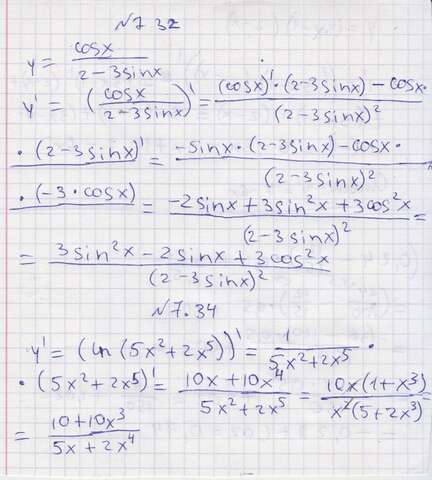 №7.32
y = cosx / (2-3sinx)
y' = (cosx / (2-3sinx))' = ((cosx)'·(2-3sinx) - cosx· / (2-3sinx)²
·(2-3sinx)' = -sinx·(2-3sinx) - cosx· / (2-3sinx)²
·(-3·cosx) = -2sinx + 3sin²x + 3cos²x / (2-3sinx)² =
= 3sin²x - 2sinx + 3cos²x / (2-3sinx)²
№7.34
y' = (ln(5x²+2x⁵))' = 1 / (5x²+2x⁵) ·
·(5x²+2x⁵)' = 10x+10x⁴ / (5x²+2x⁵) = 10x(1+x³) / x²(5+2x³) =
= 10+10x³ / (5x+2x⁴)